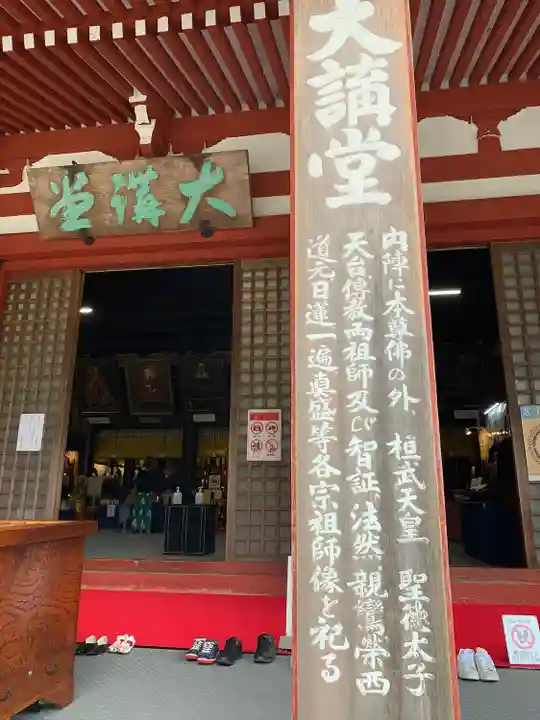 大講堂
大講堂
内陣に本尊佛の外、桓武天皇 聖徳太子
天台、傳教両祖師及び智証、法然、親鸞、榮西
道元日蓮一遍真盛等各宗祖師像を祀る